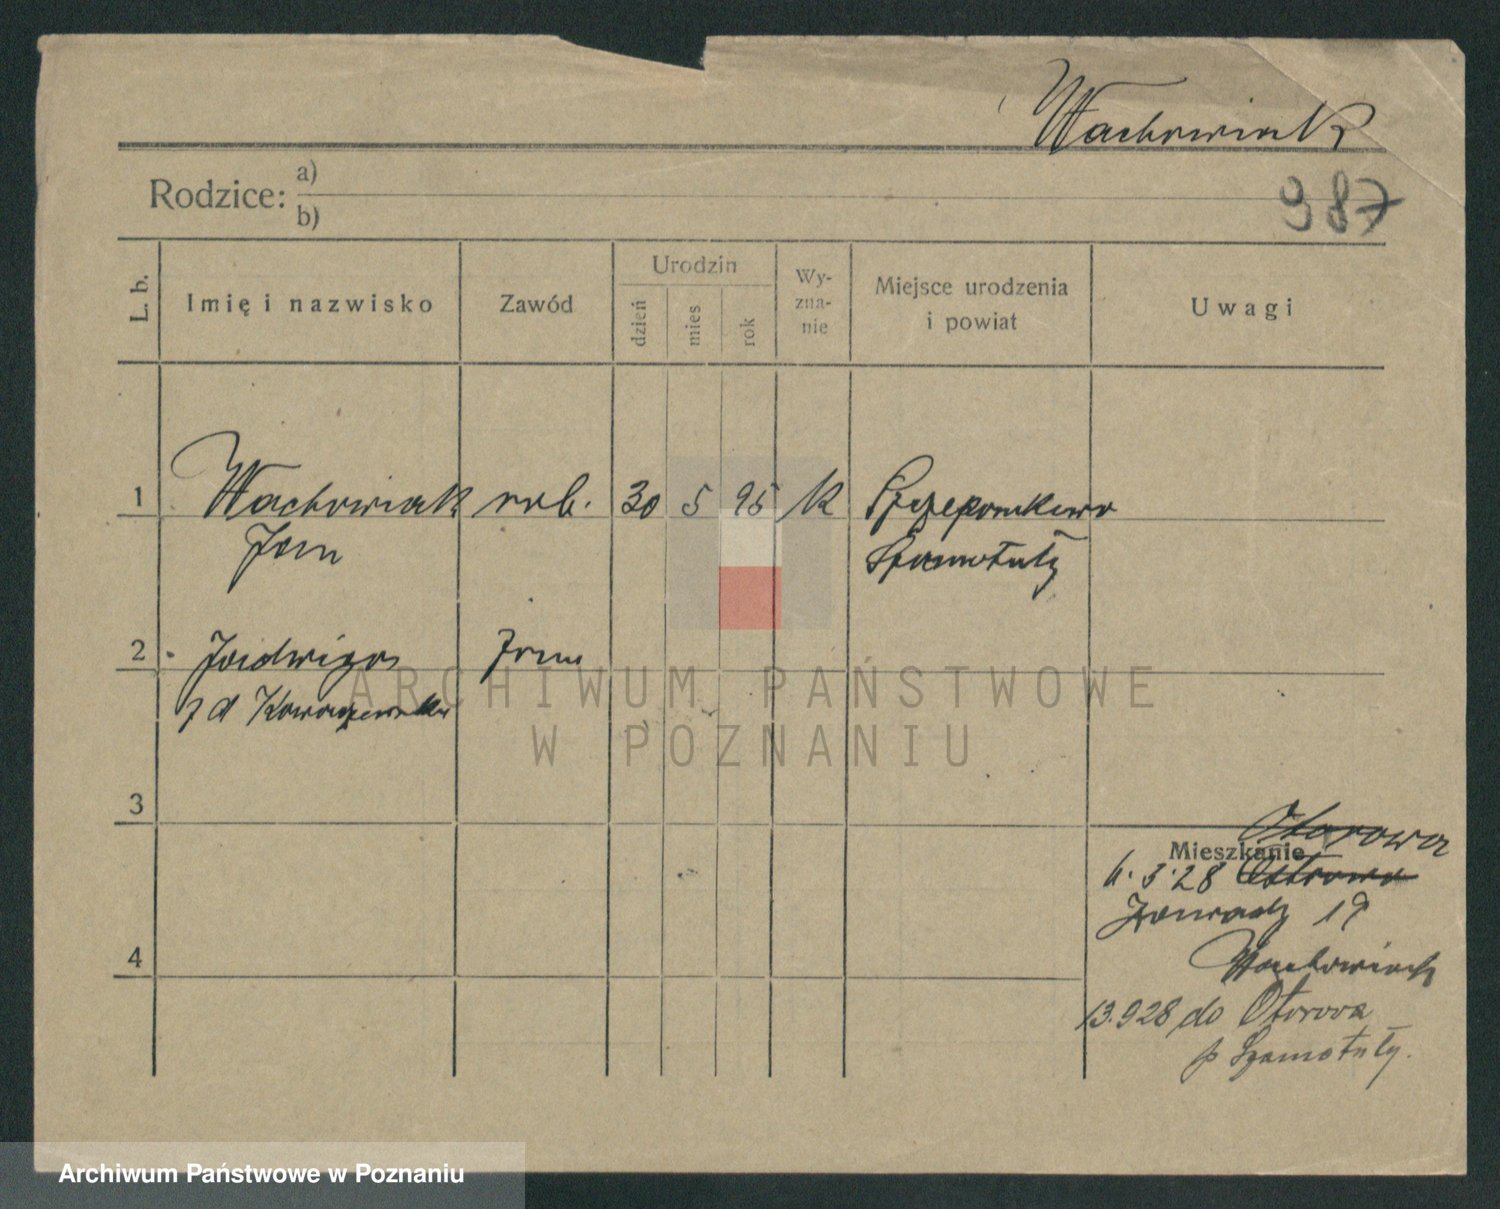 Wachowiak
Rodzice: a)
b)
987
L. b.
Imię i nazwisko
Zawód
Urodzin
dzień
mies
rok
Wy-
zna-
nie
Miejsce urodzenia
i powiat
Uwagi
1 Wachowiak rob. 30 5 95 K Szczepankowo
Jan
Szamotuły
2 Jadwiga żona
z d
3
Otorowa
Mieszkanie
3.28 Ostrowo
19
Wachowiak
4
13.928 do Otorowa
p Szamotuły.
ARCHIWUM PAŃSTWOWE
W POZNANIU
Archiwum Państwowe w Poznaniu